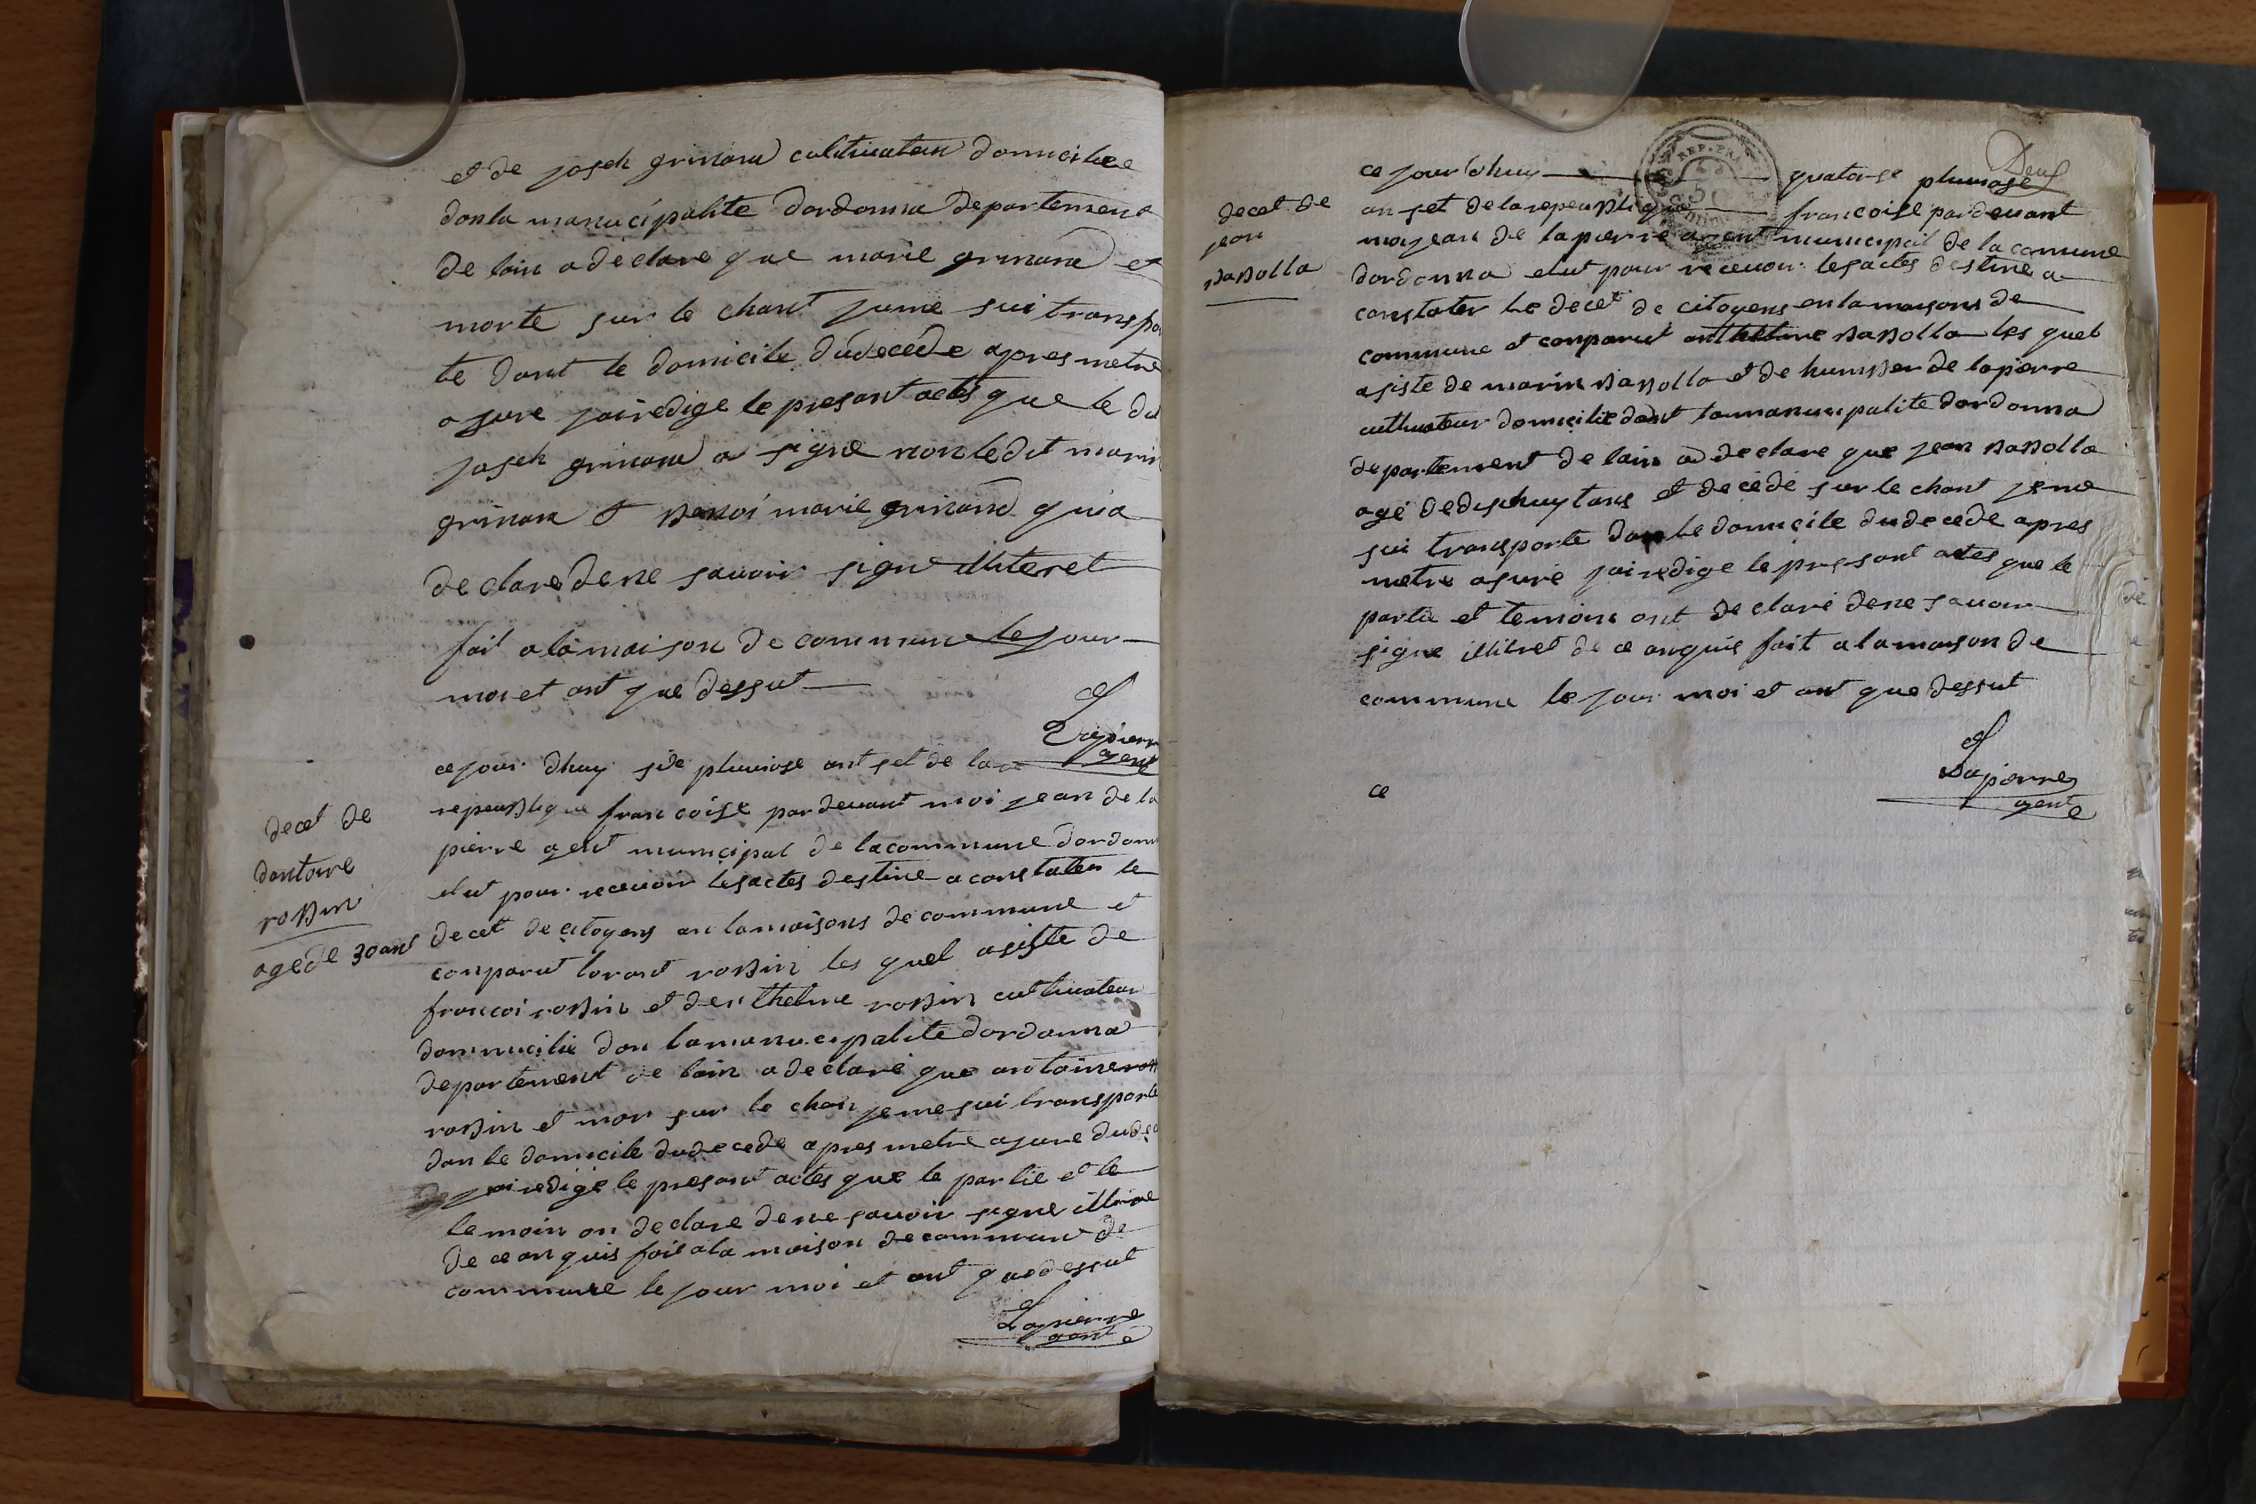 et de joseh grinand cultivateur domicilie
don la manucipalite dordonna departement
de lain a declare que marie grinand et
morte sur le chant jeme sui transpor
te dant le domicile dudecede apres metre
asure jai redige le presant actes que le dit
joseh grinand a signe non ledit marin
grinan et benoi marie grinand qui a
declare de ne savoir signe illiteret
fait a la maison de commune le jour
moi et ant que dessut
Lapierre
agent
ce jour dhuy side pluviose ant set de la
repeublique francoise pardevant moi jean de la
pierre agent municipal de lacommune dordonn
elut pour recevoir lesactes destine a constater le
decet de citoyens en lamaisons de commune et
conparut lorant robin les quel asiste de
francoi robin et denthelme robin cultivateur
dommicilie don lamanucipalite dordonna
departement de lain a declare que antoine
robin et mor sur le chan jeme sui transporte
dan le domicile dudecede apres metre asure dude
jai redige le presant actes que le partie et le
temoin on declare dene savoir signe
de ce anquis fait a la maison de commune de
commune le jour moi et ant que dessut
Lapierre
agent
decet de
dantoine
robin
age de 30 ans
Deuf
REP. FRA
ce jour dhuy quatorse pluviose
an set de la repeublique francoise pardevant
moi jean de la pierre agent municipal de la comune
dordonna elut pour recevoir lesactes destine a
constater le decet de citoyens en lamaisons de
commune et conparut anthelme babolla les quel
asiste de marin babolla et de humber de lapierre
cultivateur domicilie dant lamanucipalite dordonna
departement de lain a declare que jean babolla
age de dishuytans et decede sur le chant jeme
sui transporte dan le domicile dudecede apres
metre asure jai redige le presant actes que le
partie et temoin ont declare dene savoir
signe illitret de ce anquis fait a la maison de
commune le jour moi et ant que dessut
Lapierre
agent
ce
decet de
jean
babolla